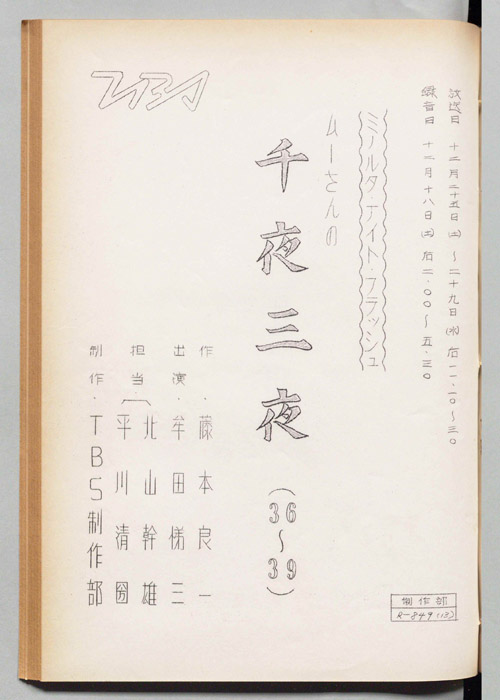 放送日 十二月二十五日(土)〜二十九日(水) 右一一・一〇〜三〇
録音日 十二月十八日(土) 右二・〇〇〜五・三〇
ミノルタ・ナイト・フラッシュ
ムーさんの
千夜三夜
(36〜39)
作・藤本良一
出演・牟田悌三
担当 北山幹雄
平川清圀
制作・TBS制作部
TBS
制作部
R-849(13)